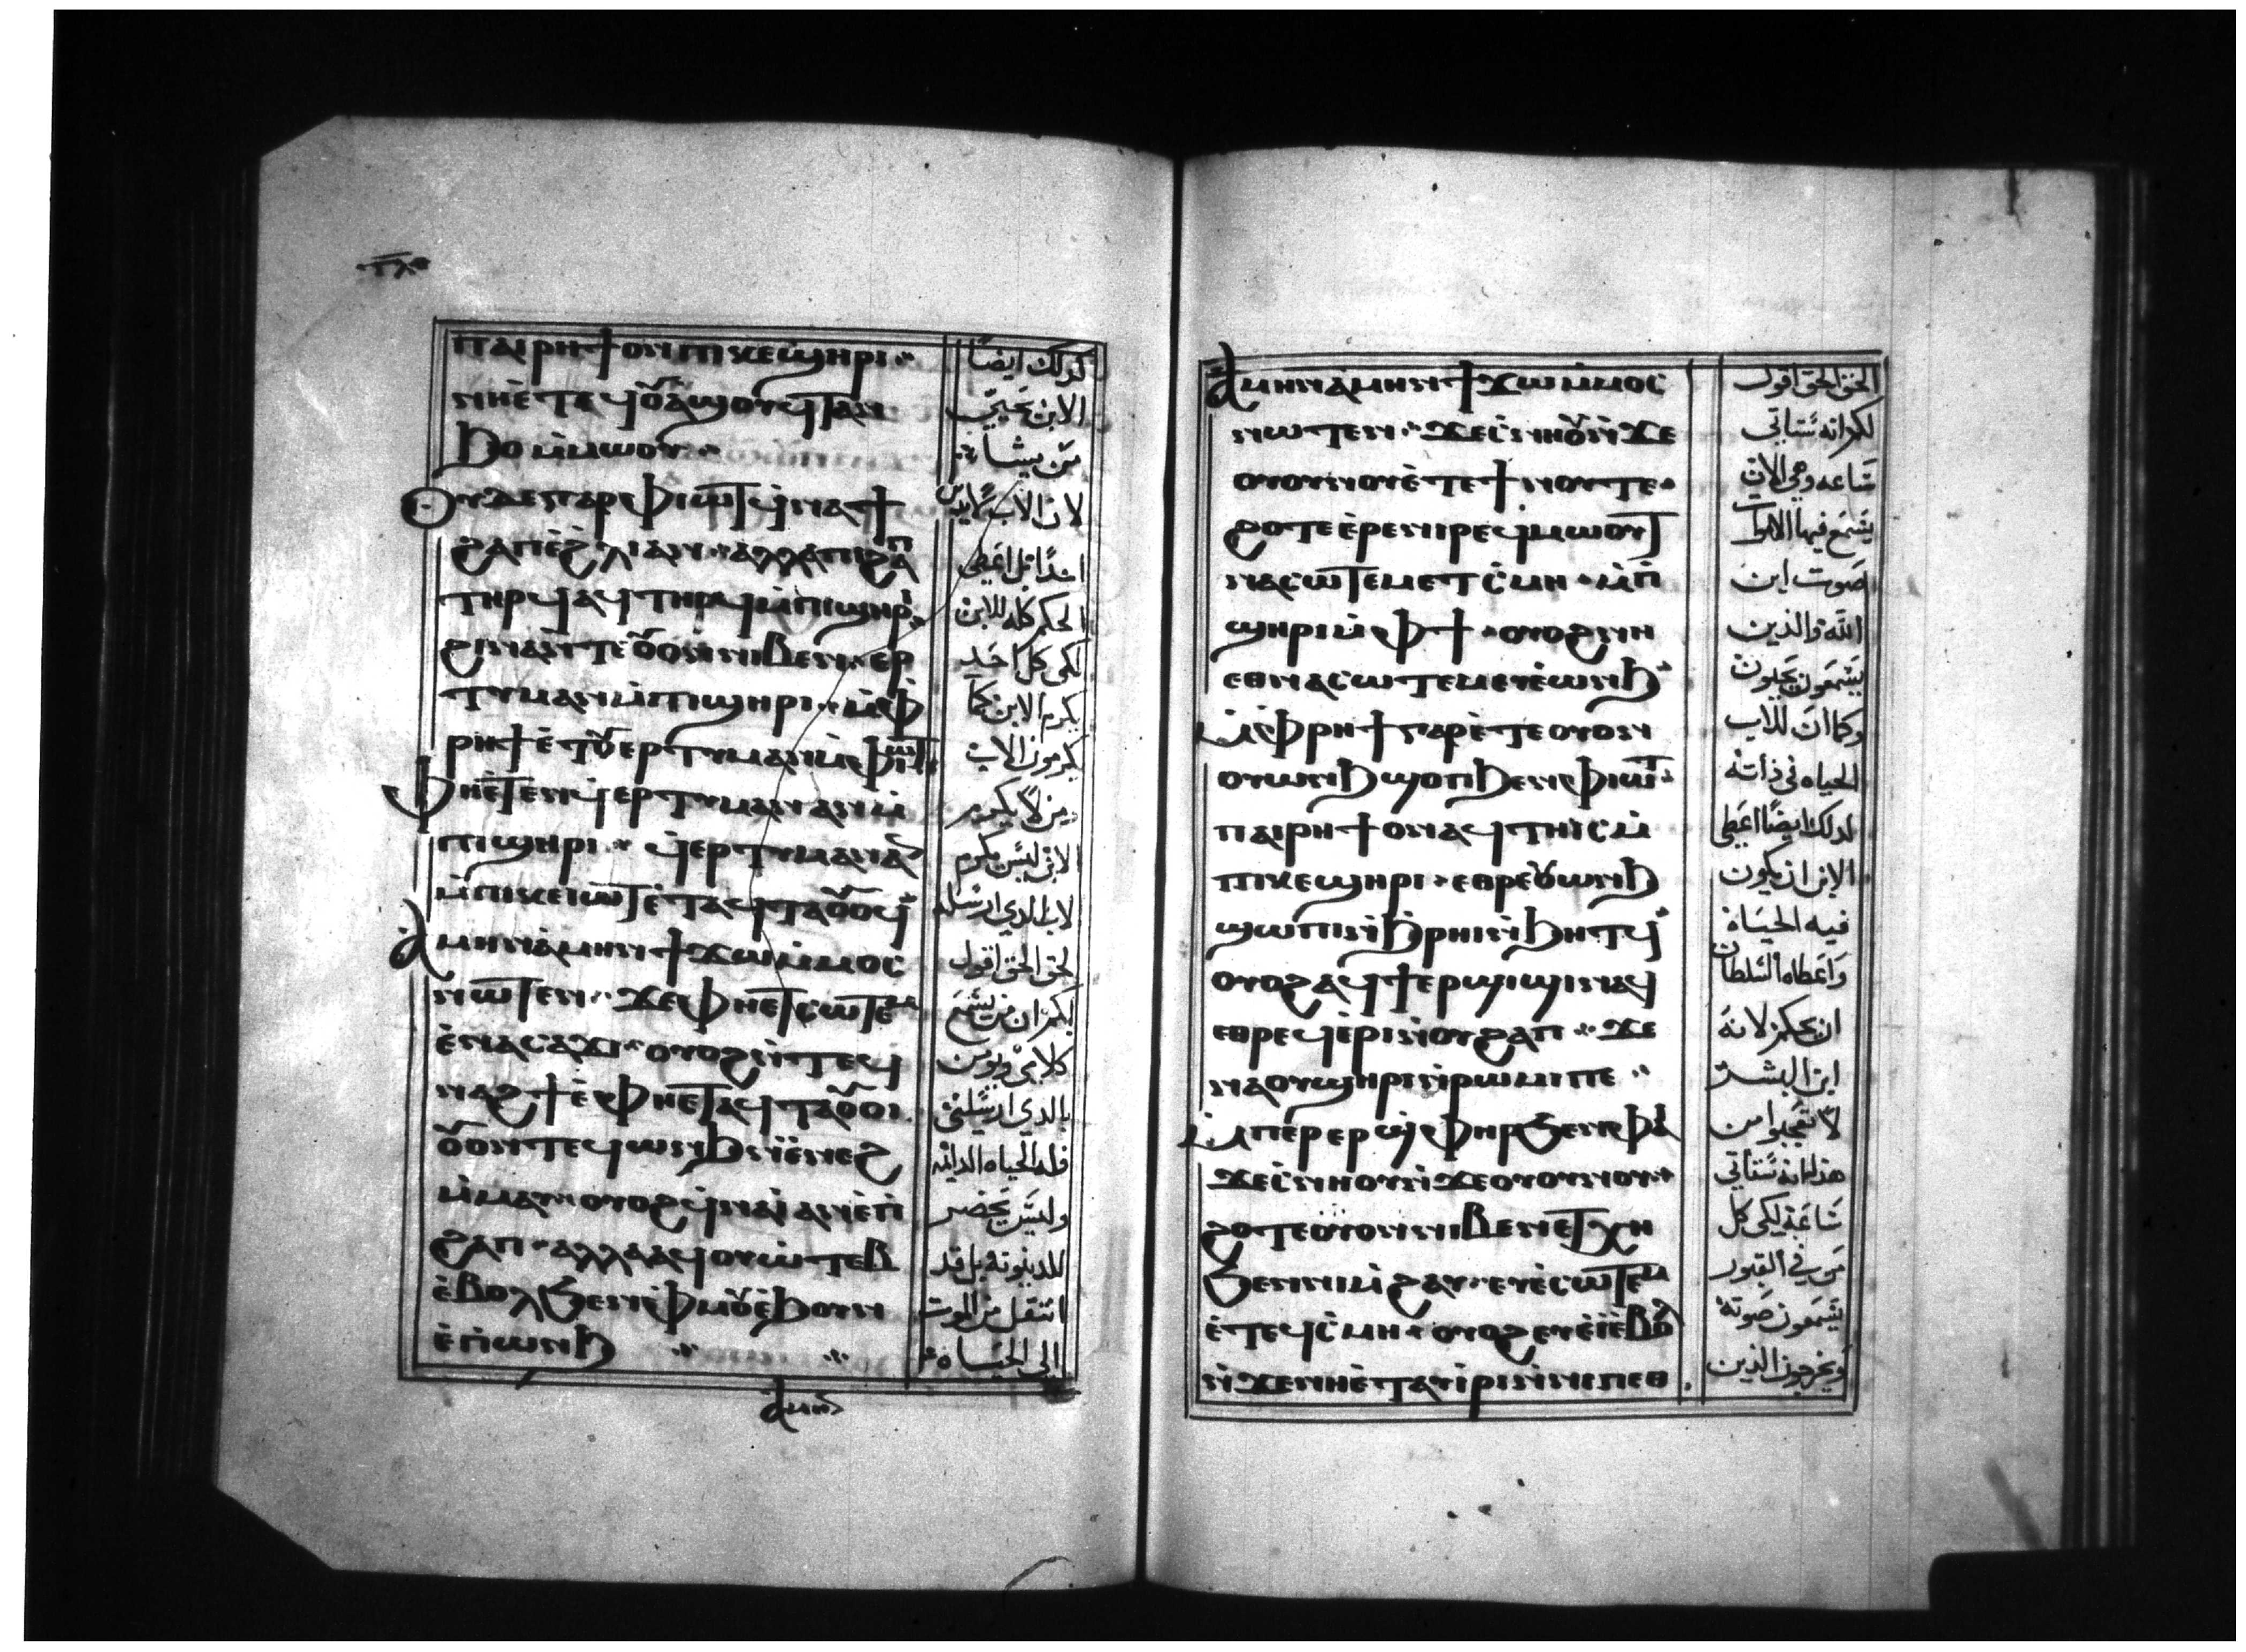 ⲡⲁⲓⲣⲏϯ ⲟⲛ ⲡⲓⲕⲉϣⲏⲣⲓ
ⲛⲏⲉⲧⲉϥⲟⲩⲁϣⲟⲩ ϥⲧⲁⲛ
ϧⲟ ⲙⲙⲱⲟⲩ
ⲟⲩⲇⲉ ⲅⲁⲣ ⲫⲓⲱⲧ ϥⲛⲁϯ
ϩⲁⲡ ⲉϩⲗⲓ ⲁⲛ ⲁⲗⲗⲁ ⲡⲓϩⲁⲡ
ⲧⲏⲣϥ ⲁϥⲧⲏⲓϥ ⲙⲡⲓϣⲏⲣⲓ
ϩⲓⲛⲁ ⲛⲧⲉ ⲟⲩⲟⲛ ⲛⲓⲃⲉⲛ ⲉⲣ
ⲧⲩⲙⲁⲛ ⲙⲡⲓϣⲏⲣⲓ ⲙⲫ
ⲣⲏϯ ⲉⲧⲟⲩⲉⲣⲧⲩⲙⲁⲛ ⲙⲫⲓⲱⲧ
ⲫⲏⲉⲧⲉⲛϥⲉⲣⲧⲩⲙⲁⲛ ⲁⲛ ⲙ
ⲡⲓϣⲏⲣⲓ ϥⲉⲣⲧⲩⲙⲁⲛ ⲁⲛ
ⲙⲡⲓⲕⲉⲓⲱⲧ ⲉⲧⲁϥⲧⲁⲟⲩⲟϥ
ⲁⲙⲏⲛ ⲁⲙⲏⲛ ϯϫⲱ ⲙⲙⲟⲥ
ⲛⲱⲧⲉⲛ ϫⲉ ⲫⲏⲉⲧⲥⲱⲧⲉⲙ
ⲉⲛⲁⲥⲁϫⲓ ⲟⲩⲟϩ ⲛⲧⲉϥ
ⲛⲁϩϯ ⲉⲫⲏⲉⲧⲁϥⲧⲁⲟⲩⲟⲓ
ⲟⲩⲟⲛⲧⲉϥ ⲱⲛϧ ⲛⲉⲛⲉϩ
ⲙⲙⲁⲩ ⲟⲩⲟϩ ϥⲛⲁⲓ ⲁⲛ ⲉⲡ
ϩⲁⲡ ⲁⲗⲗⲁ ⲁϥⲟⲩⲱⲧⲉⲃ
ⲉⲃⲟⲗ ϧⲉⲛ ⲫⲙⲟⲩ ⲉϧⲟⲩⲛ
ⲉⲡⲱⲛϧ
ⲁⲙⲏⲛ
كذلك ايضًا
الابن يحيي
من يشاء
لان الاب ليس يدين
احدًا بل اعطى
الحكم كله للابن
لكى كل احد
يكرم الابن كما
يكرمون الاب
من لا يكرم
الابن ليس يكرم
الاب الدي ارسله
الحق الحق اقول
لكم ان من يسمع
كلامي ويومن
بالدي ارسلني
فله الحياه الدايمه
وليس يحضر
للدينونة بل قد
انتقل من الموت
الى الحياه
ⲁⲙⲏⲛ ⲁⲙⲏⲛ ϯϫⲱ ⲙⲙⲟⲥ
ⲛⲱⲧⲉⲛ ϫⲉ ⲥⲛⲏⲟⲩ ⲛϫⲉ
ⲟⲩⲟⲩⲛⲟⲩ ⲉⲧⲉ ϯⲛⲟⲩ ⲧⲉ
ϩⲟⲧⲉ ⲉⲣⲉ ⲛⲓⲣⲉϥⲙⲱⲟⲩⲧ
ⲛⲁⲥⲱⲧⲉⲙ ⲉⲧⲥⲙⲏ ⲙⲡ
ϣⲏⲣⲓ ⲙⲫϯ ⲟⲩⲟϩ ⲛⲏ
ⲉⲑⲛⲁⲥⲱⲧⲉⲙ ⲉⲩⲉⲱⲛϧ
ⲙⲫⲣⲏϯ ⲅⲁⲣ ⲉⲧⲉ ⲟⲩⲟⲛ
ⲟⲩⲱⲛϧ ϣⲟⲡ ϧⲉⲛ ⲫⲓⲱⲧ
ⲡⲁⲓⲣⲏϯ ⲟⲛ ⲁϥⲧⲏⲓⲥ ⲙ
ⲡⲓⲕⲉϣⲏⲣⲓ ⲉⲑⲣⲉ ⲟⲩⲱⲛϧ
ϣⲱⲡⲓ ⲛϧⲣⲏⲓ ⲛϧⲏⲧϥ
ⲟⲩⲟϩ ⲁϥϯⲉⲣϣⲓϣⲓ ⲛⲁϥ
ⲉⲑⲣⲉϥⲉⲣⲓ ⲛⲟⲩϩⲁⲡ ϫⲉ
ⲛⲁ ⲟⲩϣⲏⲣⲓ ⲛⲣⲱⲙⲓ ⲡⲉ
ⲙⲡⲉⲣⲉⲣϣⲫⲏⲣ ϧⲉⲛ ⲫⲁ
ϫⲉ ⲥⲛⲏⲟⲩ ⲛϫⲉ ⲟⲩⲟⲩⲛⲟⲩ
ϩⲟⲧⲉ ⲟⲩⲟⲛ ⲛⲓⲃⲉⲛ ⲉⲧⲭⲏ
ϧⲉⲛ ⲛⲓⲙϩⲁⲩ ⲉⲩⲉⲥⲱⲧⲉⲙ
ⲉⲧⲉϥⲥⲙⲏ ⲟⲩⲟϩ ⲉⲩⲉⲓ ⲉⲃⲟⲗ
ⲛϫⲉ ⲛⲏⲉⲧⲁⲩⲓⲣⲓ ⲛⲛⲓⲡⲉⲑ
الحق الحق اقول
لكم انه ستاتي
ساعه وهي الان
يسمع فيها الاموات
صوت ابن
الله والذين
يسمعون يحيون
وكما ان للاب
الحياه في ذاته
لدلك ايضًا اعطى
الابن ان يكون
فيه الحياة
واعطاه السلطان
ان يحكم لانه
ابن البشر
لا تعجبوا من
هذا انه ستأتي
ساعة لكى كل
من في القبور
يسمعون صوته
ويخرجون الذين